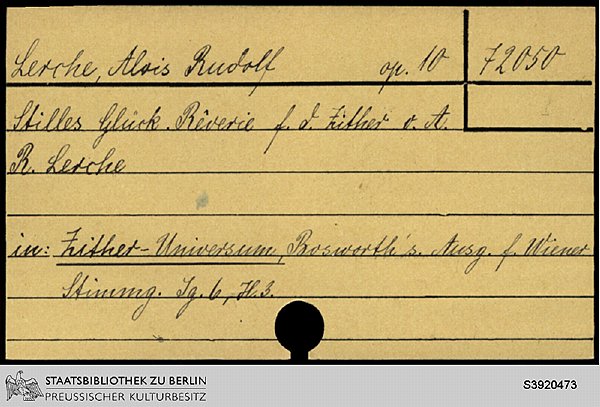 Lerche, Alois Rudolf op. 10 72050
Stilles Glück. Rêverie f. d. Zither v. A.
R. Lerche
in: Zither-Universum, Bosworth's. Ausg. f. Wiener
Stimmg. Jg. 6, H. 3.
STAATSBIBLIOTHEK ZU BERLIN
PREUSSISCHER KULTURBESITZ
S3920473